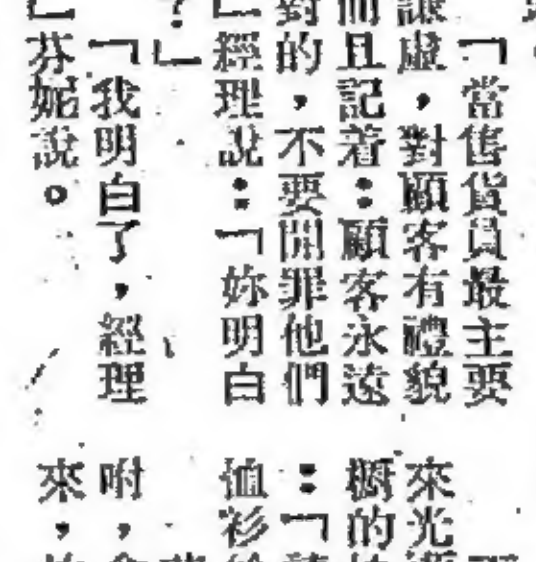 「當售貨員最主要
謙虛，對顧客有禮貌
而且記着：顧客永遠
對的，不要開罪他們
」經理說：「妳明白
？」
「我明白了，經理
」芬妮說。
來光
櫥的
：「
恤衫
咐，
來，